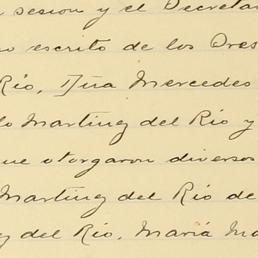 sesion y el Decreta
escrito de los Ores
Rio, Dña Mercedes
Martinez del Rio y
que otorgaron diversos
Martinez del Rio de
del Rio, Maria Ma